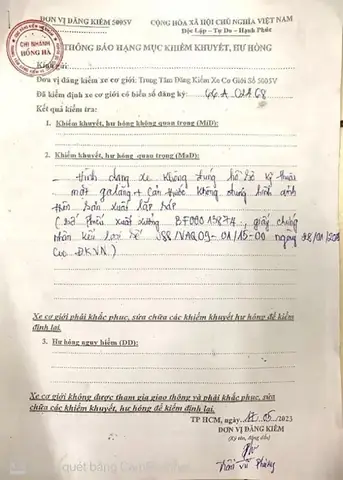 ĐƠN VỊ ĐĂNG KIỂM 5005V
CỘNG HÒA XÃ HỘI CHỦ NGHĨA VIỆT NAM
Độc Lập - Tự Do - Hạnh Phúc
CHI NHÁNH
HỒNG HÀ
THÔNG BÁO HẠNG MỤC KHIẾM KHUYẾT, HƯ HỎNG
Kính gửi:
Đơn vị đăng kiểm xe cơ giới: Trung Tâm Đăng Kiểm Xe Cơ Giới Số 5005V
Đã kiểm định xe cơ giới có biển số đăng ký:
Kết quả kiểm tra:
1. Khiếm khuyết, hư hỏng không quan trọng (MiD):
2. Khiếm khuyết, hư hỏng quan trọng (MaD):
- Hình dạng xe không đúng hồ sơ kỹ thuật
mặt galăng + Cản trước không đúng hình ảnh
nhà sản xuất lắp ráp
(Số phiếu xuất xưởng, giấy chứng
nhận kiểu loại số /VAQ09-01/15-00 ngày
Cục ĐKVN.)
Xe cơ giới phải khắc phục, sửa chữa các khiếm khuyết hư hỏng để kiểm
định lại.
3. Hư hỏng nguy hiểm (DD):
Xe cơ giới không được tham gia giao thông và phải khắc phục, sửa
chữa các khiếm khuyết, hư hỏng để kiểm định lại.
TP HCM, ngày 05/2023
ĐƠN VỊ ĐĂNG KIỂM
(Ký tên, đóng dấu)
Trần Vũ Phong
quét bằng